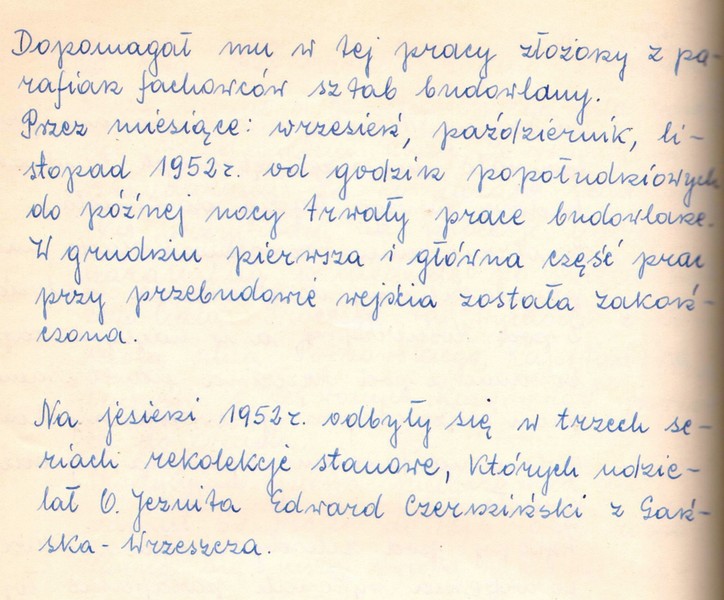 Dopomagał mu w tej pracy złożony z pa-
rafian fachowców sztab budowlany.
Przez miesiące: wrzesień, październik, li-
stopad 1952 r. od godzin popołudniowych
do późnej nocy trwały prace budowlane.
W grudniu pierwsza i główna część prac
przy przebudowie wejścia została zakoń-
czona.
Na jesieni 1952 r. odbyły się w trzech se-
riach rekolekcje stanowe, których udzie-
lał O. Jezuita Edward Czermiński z Gdań-
ska-Wrzeszcza.